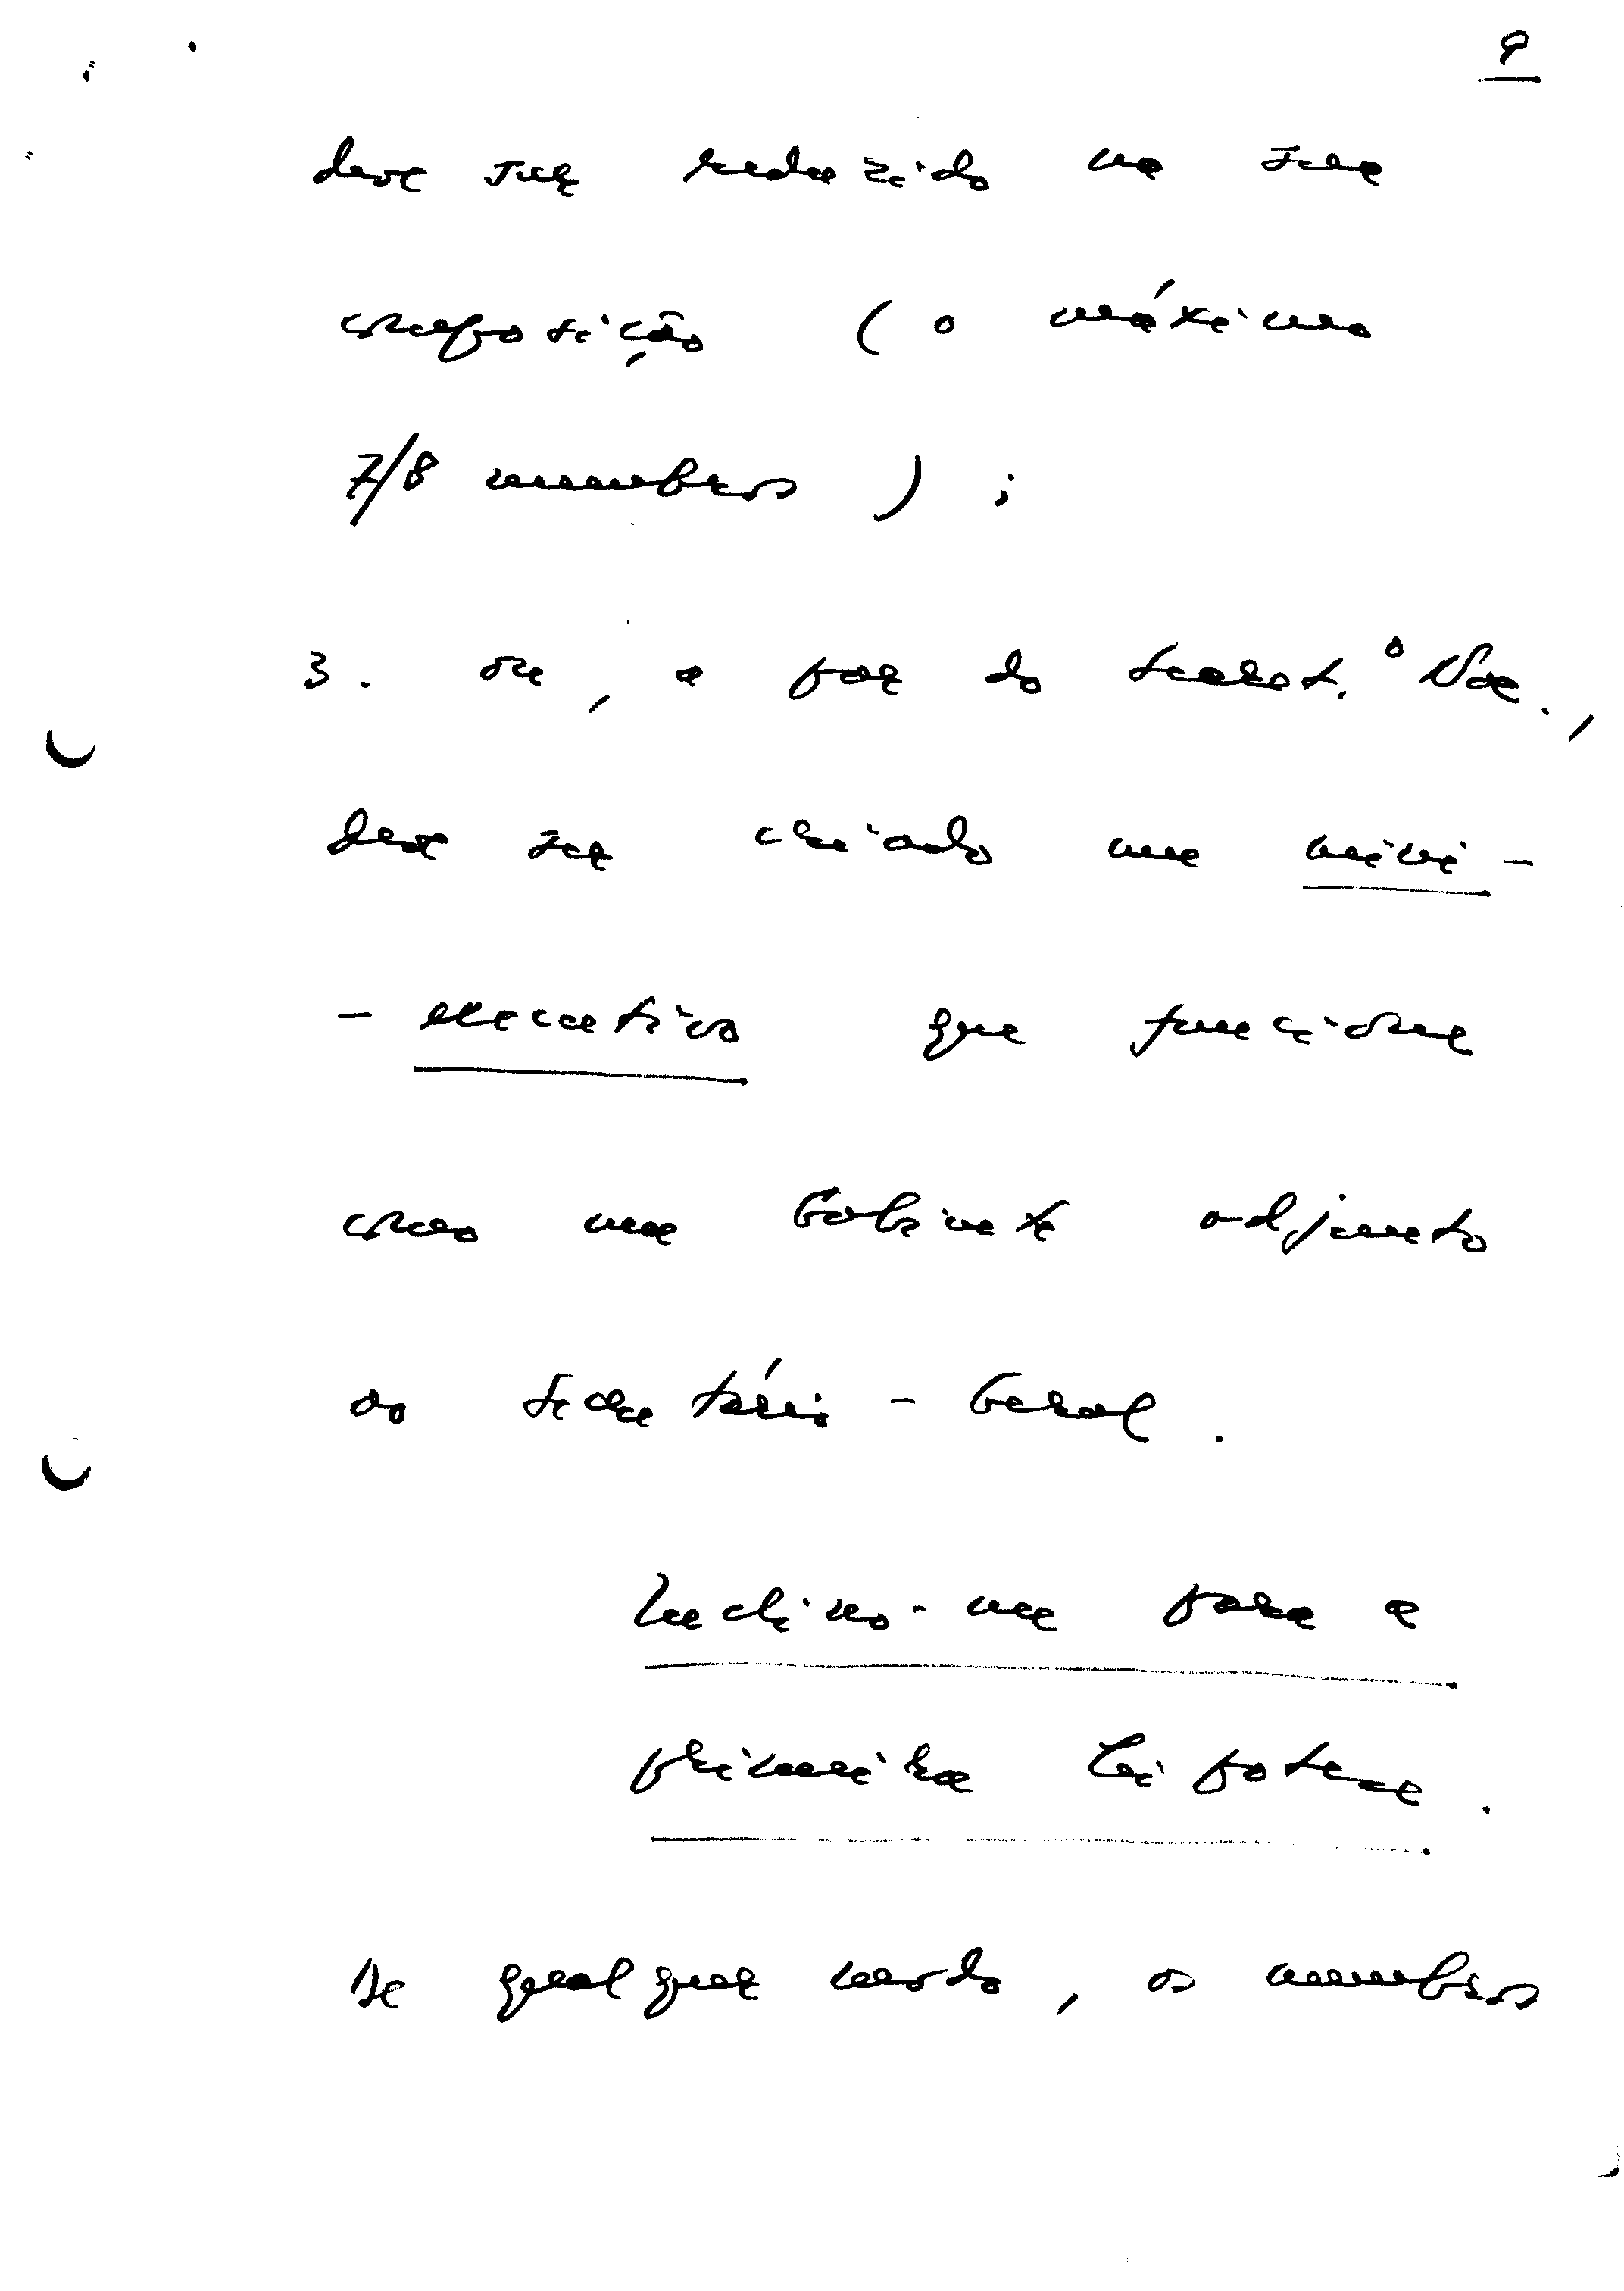 9
deve ser reduzido na sua
composição (o máximo
7/8 membros);
3. ou, a par do Secret.º Nac.,
deve ser criado um mini-
-executivo que funcione
como um Gabinete adjunto
ao Secretário-Geral.
Inclino-me para a
primeira hipótese.
De qualquer modo, os membros